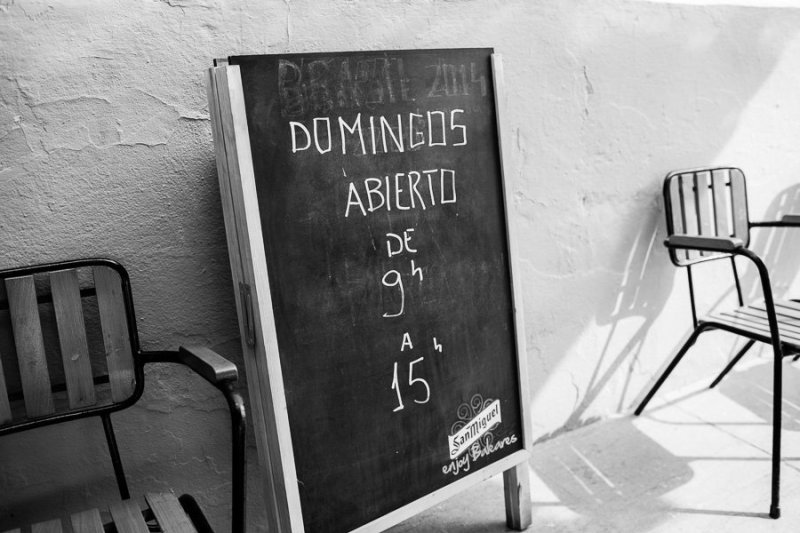 2014
DOMINGOS
ABIERTO
DE
9h
A h
15
San Miguel
enjoy Baleares